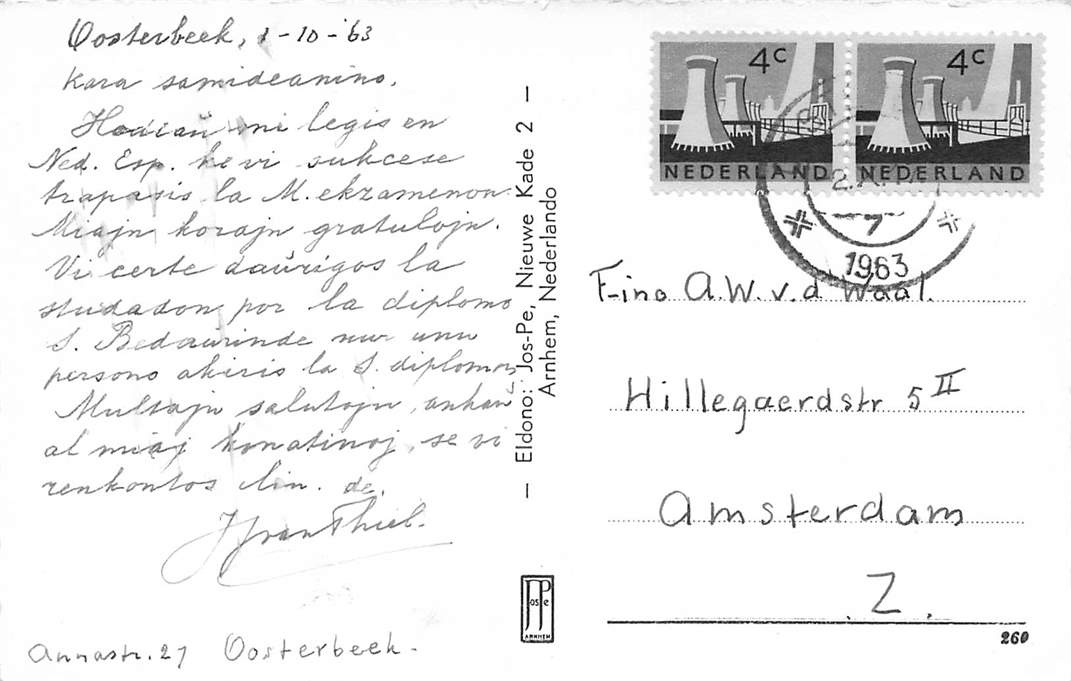 Oosterbeek, 1-10-'63
Kara samideanino,
Hodiaŭ mi legis en
Ned. Esp. ke vi sukcese
trapasis la M. ekzamenon.
Miajn korajn gratulojn.
Vi certe daŭrigos la
studadon por la diplomo
S. Bedaŭrinde nur unu
persono akiris la S. diplomon
Multajn salutojn, ankaŭ
al miaj konatinoj, se vi
renkontos ilin. de,
J van Thiel.
Annastr. 27 Oosterbeek.
— Eldono: Jos-Pe, Nieuwe Kade 2 —
Arnhem, Nederlando
Jos Pe
ARNHEM
4c
NEDERLAND
4c
NEDERLAND
7
1963
F-ino A.W. v.d Waal.
Hillegaerdstr 5 II
Amsterdam
Z.
260